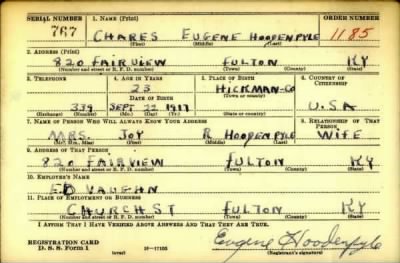 SERIAL NUMBER 1. NAME (Print) ORDER NUMBER
767 CHARES EUGENE HOODENPYLE 1185
(First) (Middle) (Last)
2. ADDRESS (Print)
820 FAIRVIEW FULTON KY
(Number and street or R. F. D. number) (Town) (County) (State)
3. TELEPHONE 4. AGE IN YEARS 5. PLACE OF BIRTH 6. COUNTRY OF CITIZENSHIP
23 HICKMAN-CO
DATE OF BIRTH (Town or county)
339 SEPT 22 1917 KY U.S.A
(Exchange) (Number) (Mo.) (Day) (Yr.) (State or country)
7. NAME OF PERSON WHO WILL ALWAYS KNOW YOUR ADDRESS 8. RELATIONSHIP OF THAT PERSON
MRS. JOY R HOODENPYLE WIFE
(Mr., Mrs., Miss) (First) (Middle) (Last)
9. ADDRESS OF THAT PERSON
820 FAIRVIEW FULTON KY
(Number and street or R. F. D. number) (Town) (County) (State)
10. EMPLOYER'S NAME
ED VAUGHN
11. PLACE OF EMPLOYMENT OR BUSINESS
CHURCH ST FULTON KY
(Number and street or R. F. D. number) (Town) (County) (State)
I AFFIRM THAT I HAVE VERIFIED ABOVE ANSWERS AND THAT THEY ARE TRUE.
REGISTRATION CARD
D. S. S. Form 1 (over) 16-17105 Eugene Hoodenpyle
(Registrant's signature)